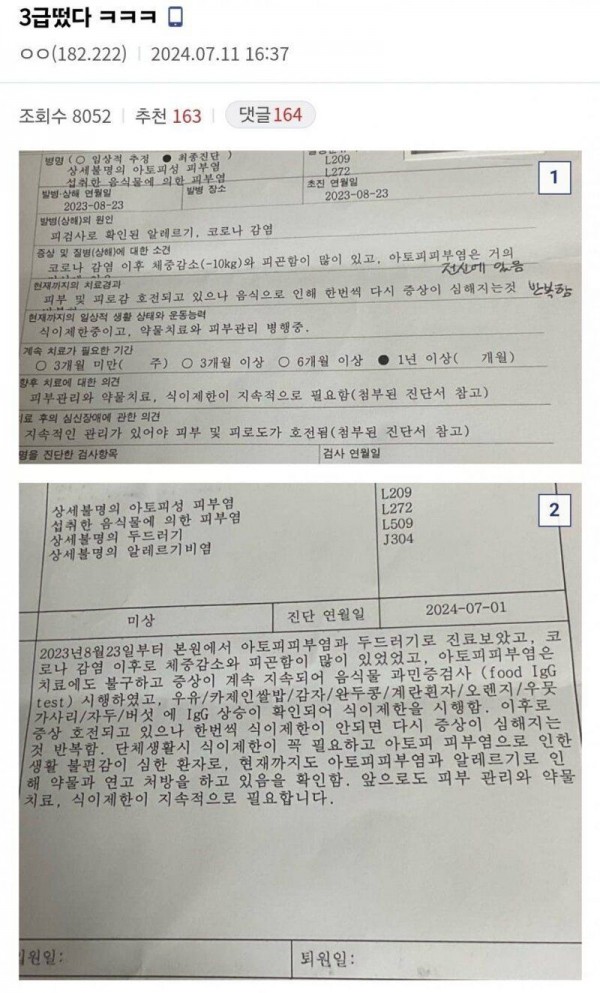 3급떴다 ㅋㅋㅋ
ㅇㅇ(182.222) 2024.07.11 16:37
조회수 8052 추천 163 댓글164
1
병명 (○ 임상적 추정 ● 최종진단 )
상세불명의 아토피성 피부염
섭취한 음식물에 의한 피부염
L209
L272
발병·상해 연월일
2023-08-23
발병 장소
초진 연월일
2023-08-23
발병(상해)의 원인
피검사로 확인된 알레르기, 코로나 감염
증상 및 질병(상해)에 대한 소견
코로나 감염 이후 체중감소(-10kg)와 피곤함이 많이 있고, 아토피피부염은 거의
전신에 있음
현재까지의 치료경과
피부 및 피로감 호전되고 있으나 음식으로 인해 한번씩 다시 증상이 심해지는것 반복함
현재까지의 일상적 생활 상태와 운동능력
식이제한중이고, 약물치료와 피부관리 병행중.
계속 치료가 필요한 기간
○ 3개월 미만( 주) ○ 3개월 이상 ○ 6개월 이상 ● 1년 이상( 개월)
향후 치료에 대한 의견
피부관리와 약물치료, 식이제한이 지속적으로 필요함(첨부된 진단서 참고)
료 후의 심신장애에 관한 의견
지속적인 관리가 있어야 피부 및 피로도가 호전됨(첨부된 진단서 참고)
명을 진단한 검사항목
검사 연월일
2
상세불명의 아토피성 피부염
섭취한 음식물에 의한 피부염
상세불명의 두드러기
상세불명의 알레르기비염
L209
L272
L509
J304
미상
진단 연월일
2024-07-01
2023년8월23일부터 본원에서 아토피피부염과 두드러기로 진료보았고, 코
로나 감염 이후로 체중감소와 피곤함이 많이 있었었고, 아토피피부염은
치료에도 불구하고 증상이 계속 지속되어 음식물 과민증검사 (food IgG
test) 시행하였고, 우유/카제인쌀밥/감자/완두콩/계란흰자/오렌지/우뭇
가사리/자두/버섯 에 IgG 상승이 확인되어 식이제한을 시행함. 이후로
증상 호전되고 있으나 한번씩 식이제한이 안되면 다시 증상이 심해지는
것 반복함. 단체생활시 식이제한이 꼭 필요하고 아토피 피부염으로 인한
생활 불편감이 심한 환자로, 현재까지도 아토피피부염과 알레르기로 인
해 약물과 연고 처방을 하고 있음을 확인함. 앞으로도 피부 관리와 약물
치료, 식이제한이 지속적으로 필요합니다.
입원일:
퇴원일: